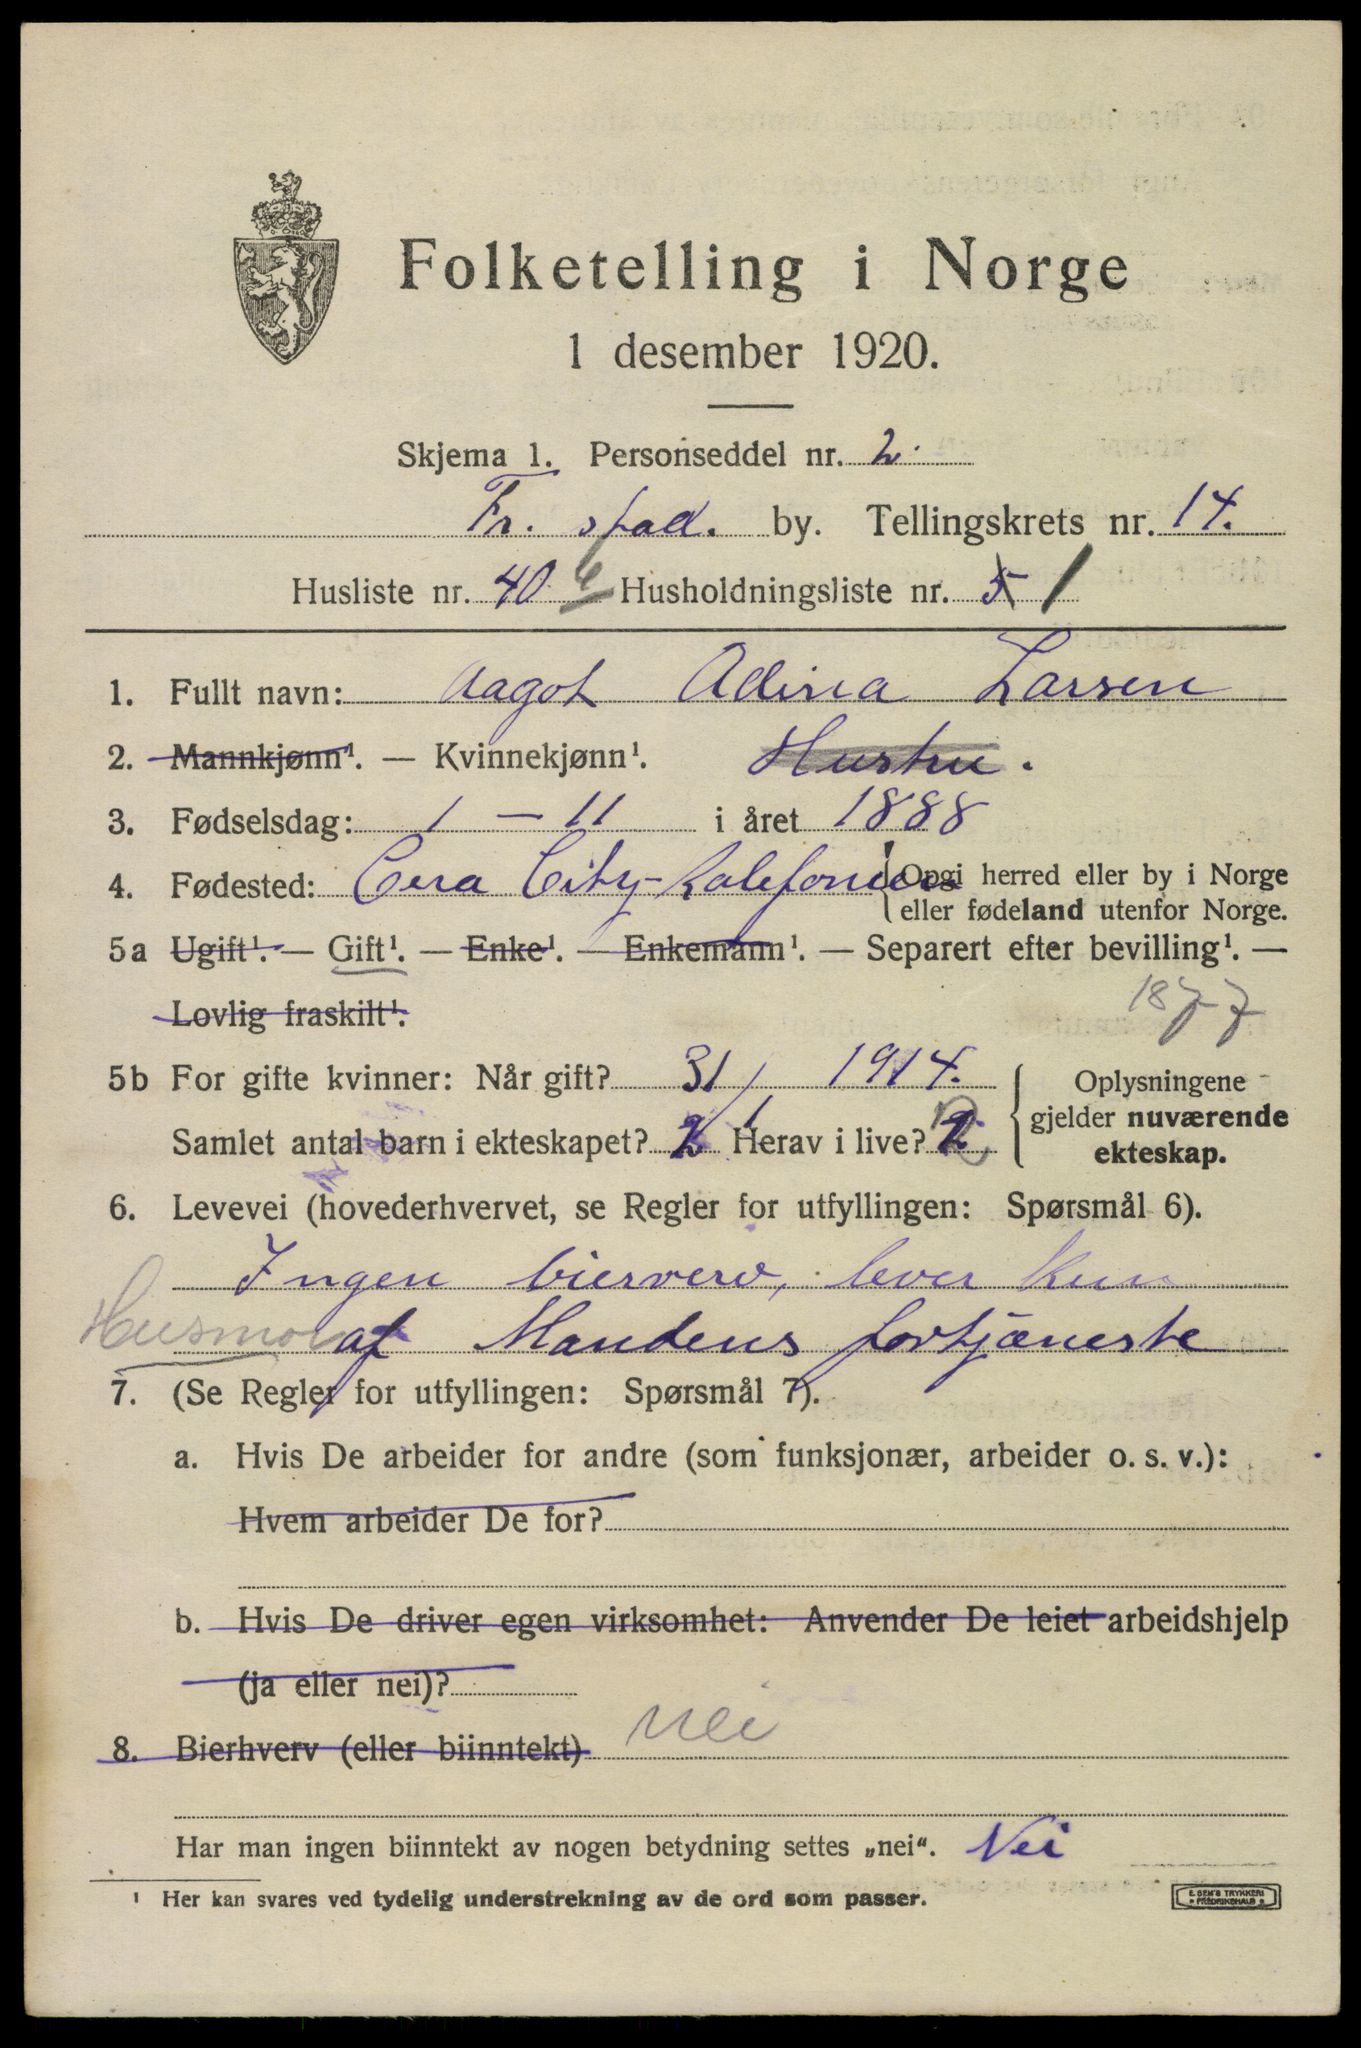 Folketelling i Norge
1 desember 1920.
Skjema 1. Personseddel nr. 2.
Fr. stad. by. Tellingskrets nr. 14.
Husliste nr. 40 Husholdningsliste nr. 5 1
1. Fullt navn: Aagot Adina Larsen
2. Mannkjønn¹. — Kvinnekjønn¹. Hustru.
3. Fødselsdag: 1 - 11 i året 1888
4. Fødested: City - Opgi herred eller by i Norge
eller fødeland utenfor Norge.
5a Ugift¹. — Gift¹. — Enke¹. — Enkemann¹. — Separert efter bevilling¹. —
Lovlig fraskilt¹.
1877
5b For gifte kvinner: Når gift? 31/1 1914.
Samlet antal barn i ekteskapet? 2 Herav i live? 2
Oplysningene
gjelder nuværende
ekteskap.
6. Levevei (hovederhvervet, se Regler for utfyllingen: Spørsmål 6).
Ingen bierverv, lever kun
Husmor af Mandens fortjæneste
7. (Se Regler for utfyllingen: Spørsmål 7).
a. Hvis De arbeider for andre (som funksjonær, arbeider o. s. v.):
Hvem arbeider De for?
b. Hvis De driver egen virksomhet: Anvender De leiet arbeidshjelp
(ja eller nei)?
8. Bierhverv (eller biinntekt) Nei
Har man ingen biinntekt av nogen betydning settes „nei“. Nei
¹ Her kan svares ved tydelig understrekning av de ord som passer.
E. SEM'S TRYKKERI
FREDRIKSHALD